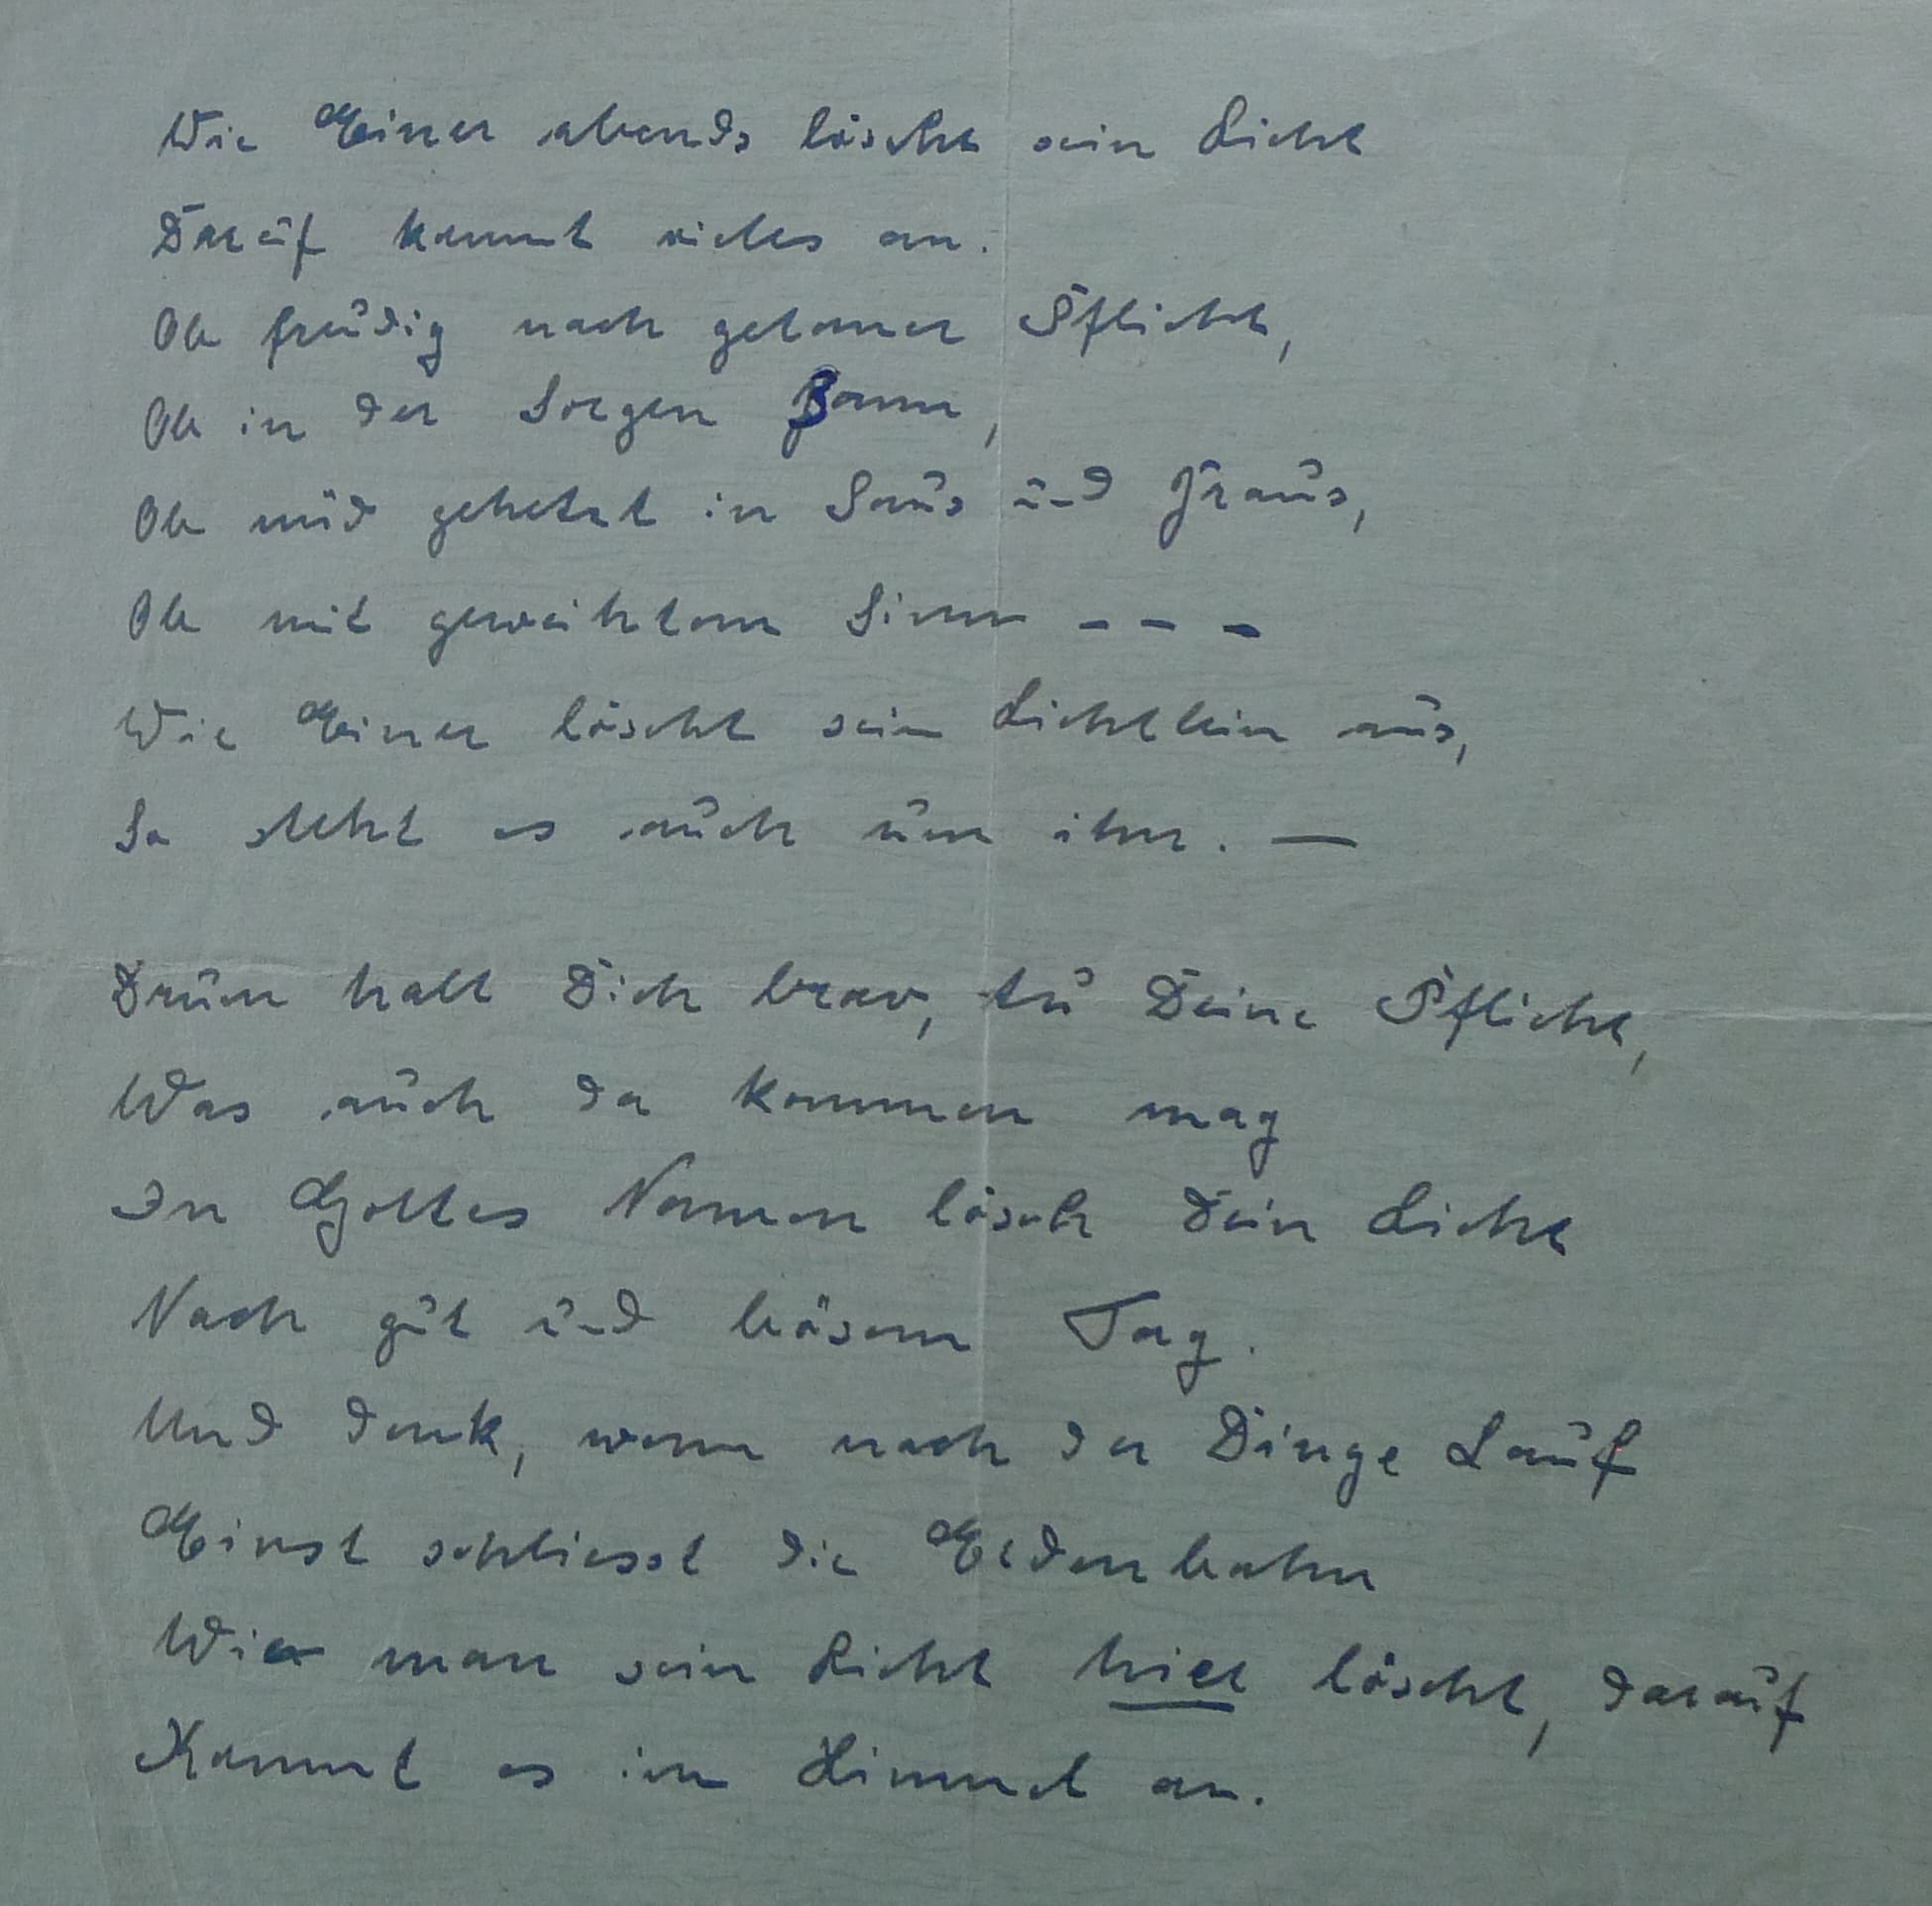 Wie Einer abends löscht sein Licht
Darauf kommt vieles an.
Ob freudig nach getaner Pflicht,
Ob in der Sorgen Bann,
Ob müd gehetzt in Saus und Graus,
Ob mit geweihtem Sinn - - -
Wie Einer löscht sein Lichtlein aus,
So steht es auch um ihn. —
Drum halt Dich brav, tu Deine Pflicht,
Was auch da kommen mag
In Gottes Namen lösch Dein Licht
Nach gut und bösem Tag.
Und denk, wenn nach der Dinge Lauf
Einst schliesst die Erdenbahn
Wie man sein Licht hier löscht, darauf
Kommt es im Himmel an.